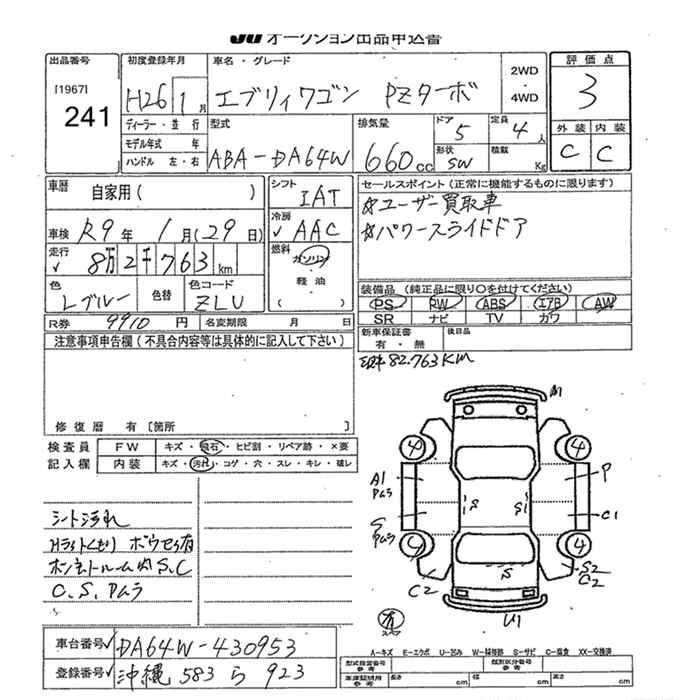 JU オークション出品申込書
出品番号 初度登録年月 車名・グレード 2WD 評価点
[1967] H26 1月 エブリィワゴン PZターボ ・ 3
241 4WD
ディーラー・並行 型式 排気量 ドア 5 定員 4人 外装 内装
モデル年式 年 ABA-DA64W 660cc 形状 SW 積載 Kg C C
ハンドル 左・右
車歴 自家用( ) シフト IAT セールスポイント(正常に機能するものに限ります)
車検 R9年 1月(29日) 冷房 AAC ☆ユーザー買取車
走行 8万2千763km 燃料 ガソリン ☆パワースライドドア
軽油
色 Lブルー 色替 色コード ZLU 装備品(純正品に限り○を付けてください)
PS PW ABS エアB AW
SR ナビ TV カワ
R券 9910円 名変期限 月 日 新車保証書 後日品
有・無
注意事項申告欄(不具合内容等は具体的に記入して下さい)
82.763KM
修復歴 有[箇所 ]
検査員 FW キズ・飛石・ヒビ割・リペア跡・×要
記入欄 内装 キズ・汚れ・コゲ・穴・スレ・キレ・破レ
4 4
A1 ムラ P
S S1 C1
S ムラ
4 4
S S2
C2 C2
U1
シート汚れ
Hライトくもり ボウセイ有
ボンネットルーム内S.C
C.S.Pムラ
有
スペア
車台番号 DA64W-430953
登録番号 沖縄 583 ら 923
A-キズ E-エクボ U-凹み W-補修跡 S-サビ C-腐食 XX-交換済
型式指定番号 類別区分番号
車庫証明用 長さ cm 幅 cm 高さ cm